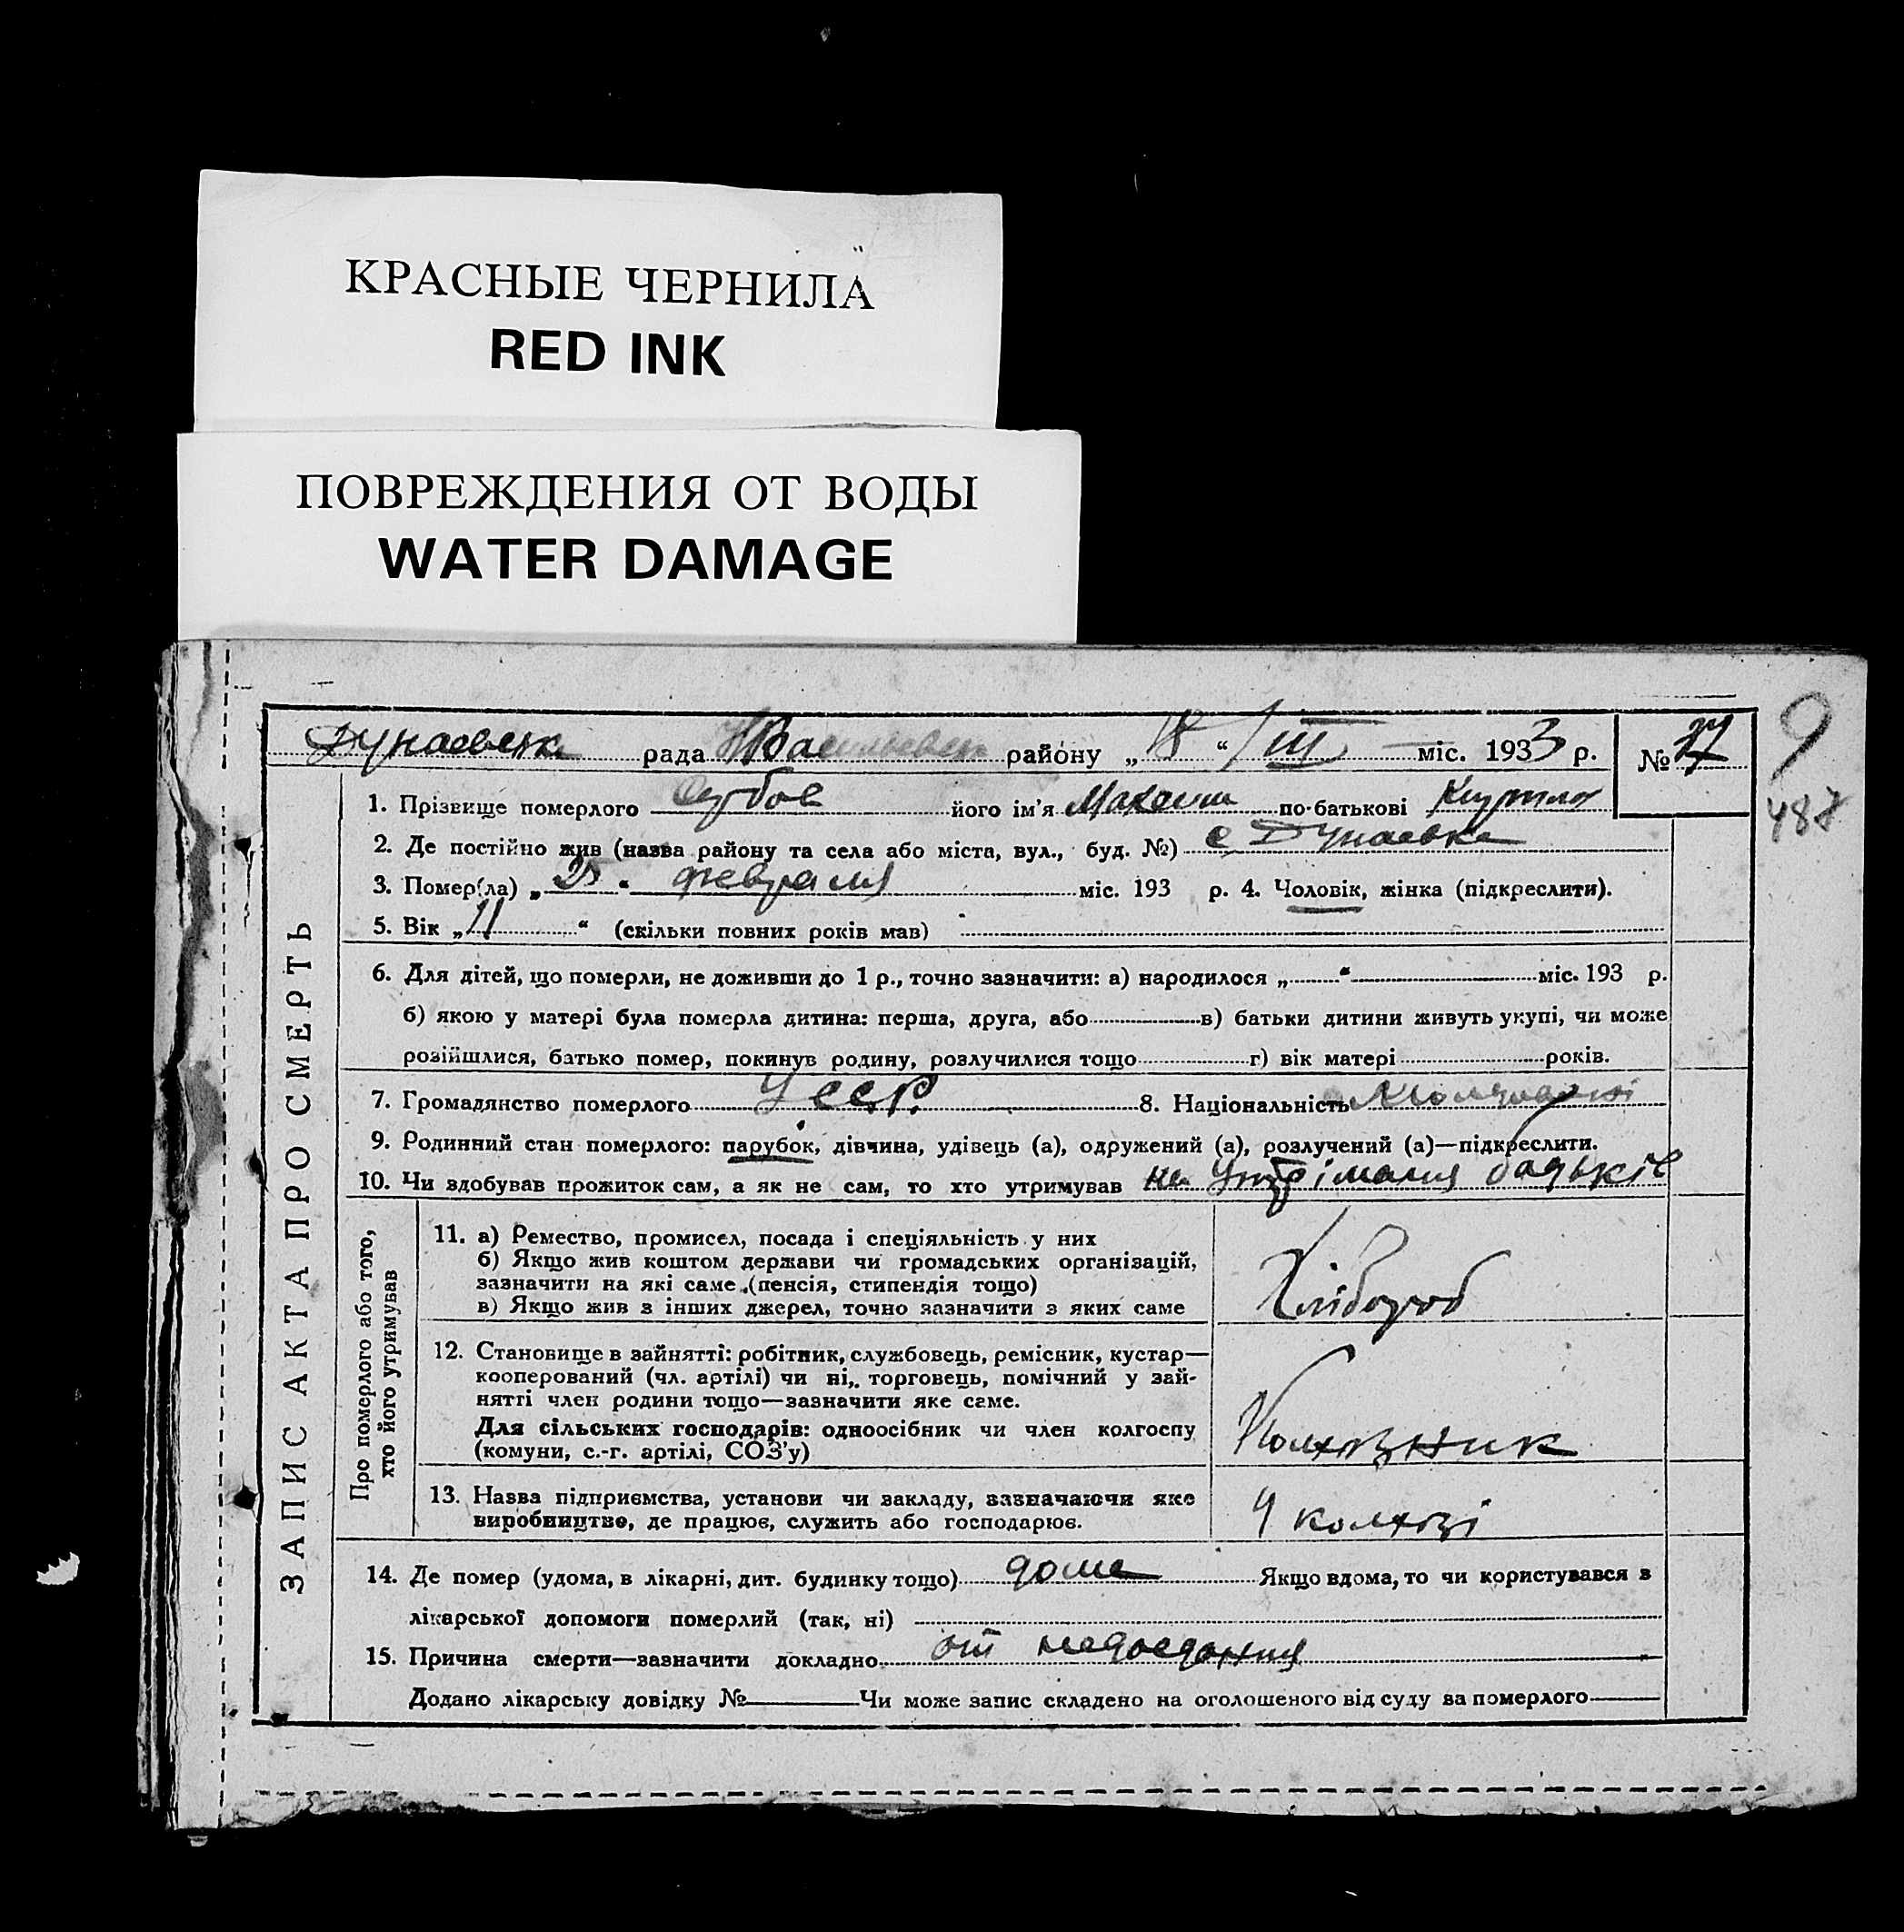 КРАСНЫЕ ЧЕРНИЛА
RED INK
ПОВРЕЖДЕНИЯ ОТ ВОДЫ
WATER DAMAGE
9
487
Дунаевська рада Н Васильевск району „18“ III міс. 1933 р. №
ЗАПИС АКТА ПРО СМЕРТЬ
1. Прізвище померлого його ім'я Максим по-батькові
2. Де постійно жив (назва району та села або міста, вул., буд. №) с Дунаевка
3. Помер(ла) „25“ февраля міс. 193 р. 4. Чоловік, жінка (підкреслити).
5. Вік „11“ (скільки повних років мав)
6. Для дітей, що померли, не доживши до 1 р., точно зазначити: а) народилося „ “ міс. 193 р.
б) якою у матері була померла дитина: перша, друга, або в) батьки дитини живуть укупі, чи може
розійшлися, батько помер, покинув родину, розлучилися тощо г) вік матері років.
7. Громадянство померлого УССР. 8. Національність
9. Родинний стан померлого: парубок, дівчина, удівець (а), одружений (а), розлучений (а)—підкреслити.
10. Чи здобував прожиток сам, а як не сам, то хто утримував на утріманя батьків
Про померлого або того,
хто його утримував
11. а) Ремество, промисел, посада і спеціяльність у них
б) Якщо жив коштом держави чи громадських організацій,
зазначити на які саме (пенсія, стипендія тощо)
в) Якщо жив з інших джерел, точно зазначити з яких саме
Хлібороб
12. Становище в зайнятті: робітник, службовець, ремісник, кустар—
кооперований (чл. артілі) чи ні, торговець, помічний у зай-
нятті член родини тощо—зазначити яке саме.
Для сільських господарів: одноосібник чи член колгоспу
(комуни, с.-г. артілі, СОЗ'у)
Колхозник
13. Назва підприємства, установи чи закладу, зазначаючи яке
виробництво, де працює, служить або господарює.
У колхозі
14. Де помер (удома, в лікарні, дит. будинку тощо) дома Якщо вдома, то чи користувався з
лікарської допомоги померлий (так, ні)
15. Причина смерти—зазначити докладно от недоедания
Додано лікарську довідку № Чи може запис складено на оголошеного від суду за померлого